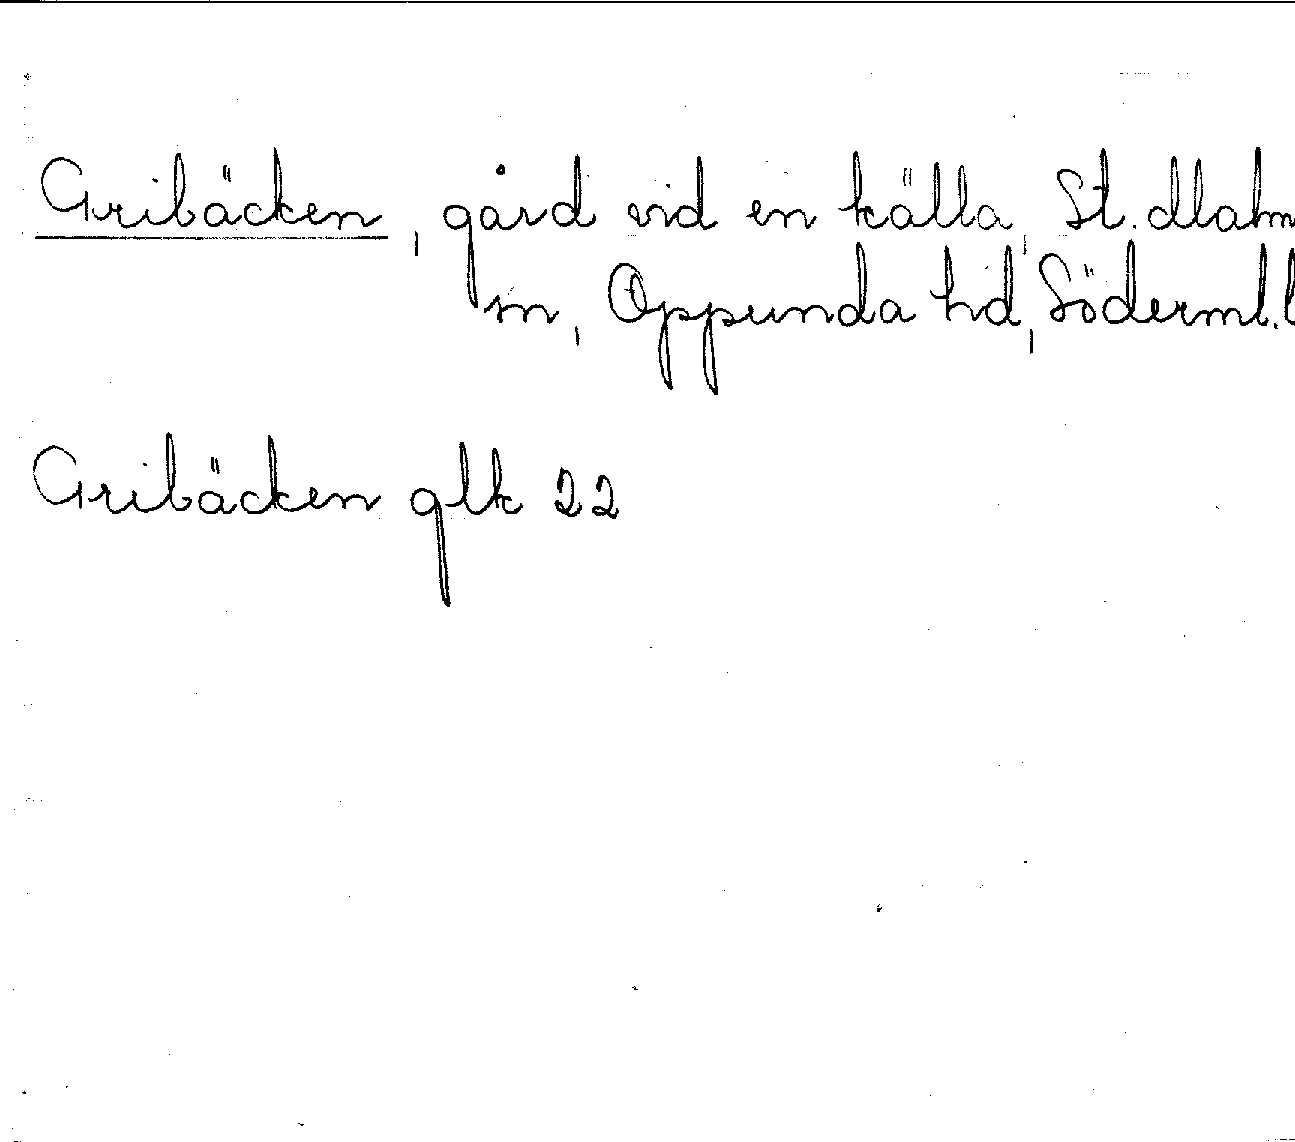 Gribäcken, gård vid en källa, St. Malm
sn, Oppunda hd, Söderml. l
Gribäcken glk 22